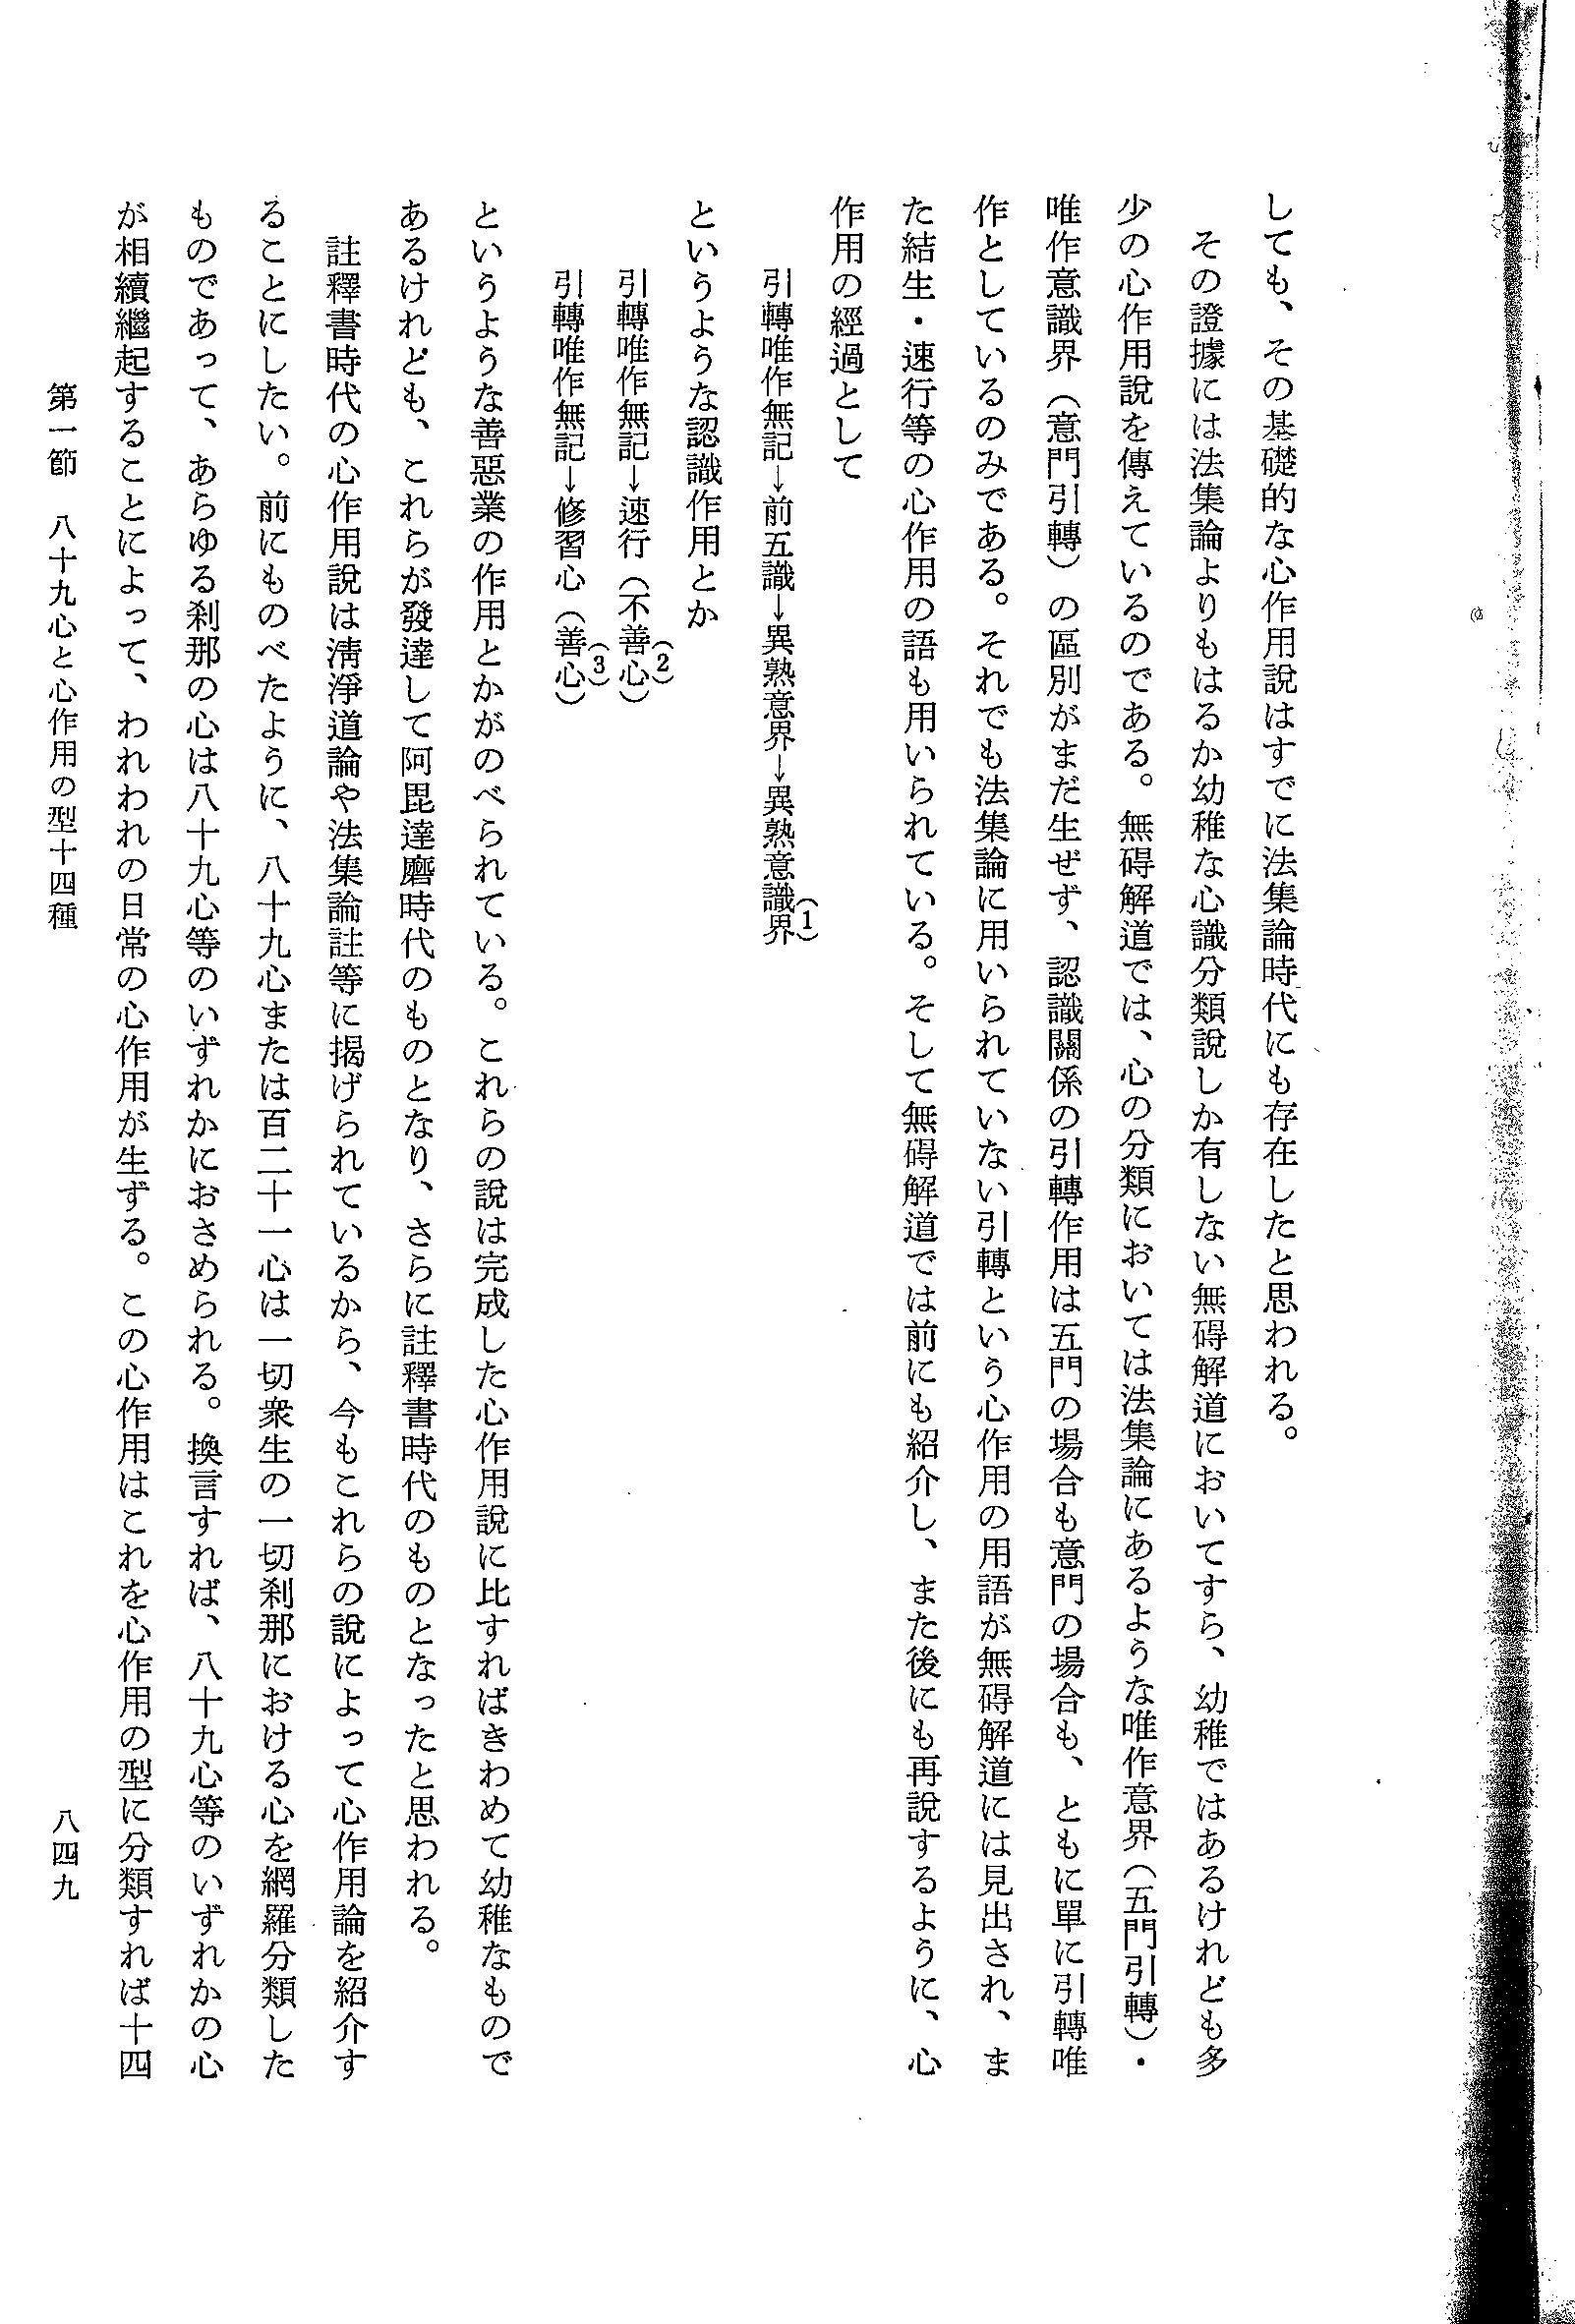 しても、その基礎的な心作用說はすでに法集論時代にも存在したと思われる。
その證據には法集論よりもはるか幼稚な心識分類說しか有しない無碍解道においてすら、幼稚ではあるけれども多
少の心作用說を傳えているのである。無碍解道では、心の分類においては法集論にあるような唯作意界（五門引轉）・
唯作意識界（意門引轉）の區別がまだ生ぜず、認識關係の引轉作用は五門の場合も意門の場合も、ともに單に引轉唯
作としているのみである。それでも法集論に用いられていない引轉という心作用の用語が無碍解道には見出され、ま
た結生・速行等の心作用の語も用いられている。そして無碍解道では前にも紹介し、また後にも再說するように、心
作用の經過として
引轉唯作無記→前五識→異熟意界→異熟意識界(1)
というような認識作用とか
引轉唯作無記→速行（不善心）(2)
引轉唯作無記→修習心（善心）(3)
というような善惡業の作用とかがのべられている。これらの說は完成した心作用說に比すればきわめて幼稚なもので
あるけれども、これらが發達して阿毘達磨時代のものとなり、さらに註釋書時代のものとなったと思われる。
註釋書時代の心作用說は淸淨道論や法集論註等に揭げられているから、今もこれらの說によって心作用論を紹介す
ることにしたい。前にものべたように、八十九心または百二十一心は一切衆生の一切刹那における心を網羅分類した
ものであって、あらゆる刹那の心は八十九心等のいずれかにおさめられる。換言すれば、八十九心等のいずれかの心
が相續繼起することによって、われわれの日常の心作用が生ずる。この心作用はこれを心作用の型に分類すれば十四
第一節　八十九心と心作用の型十四種
八四九